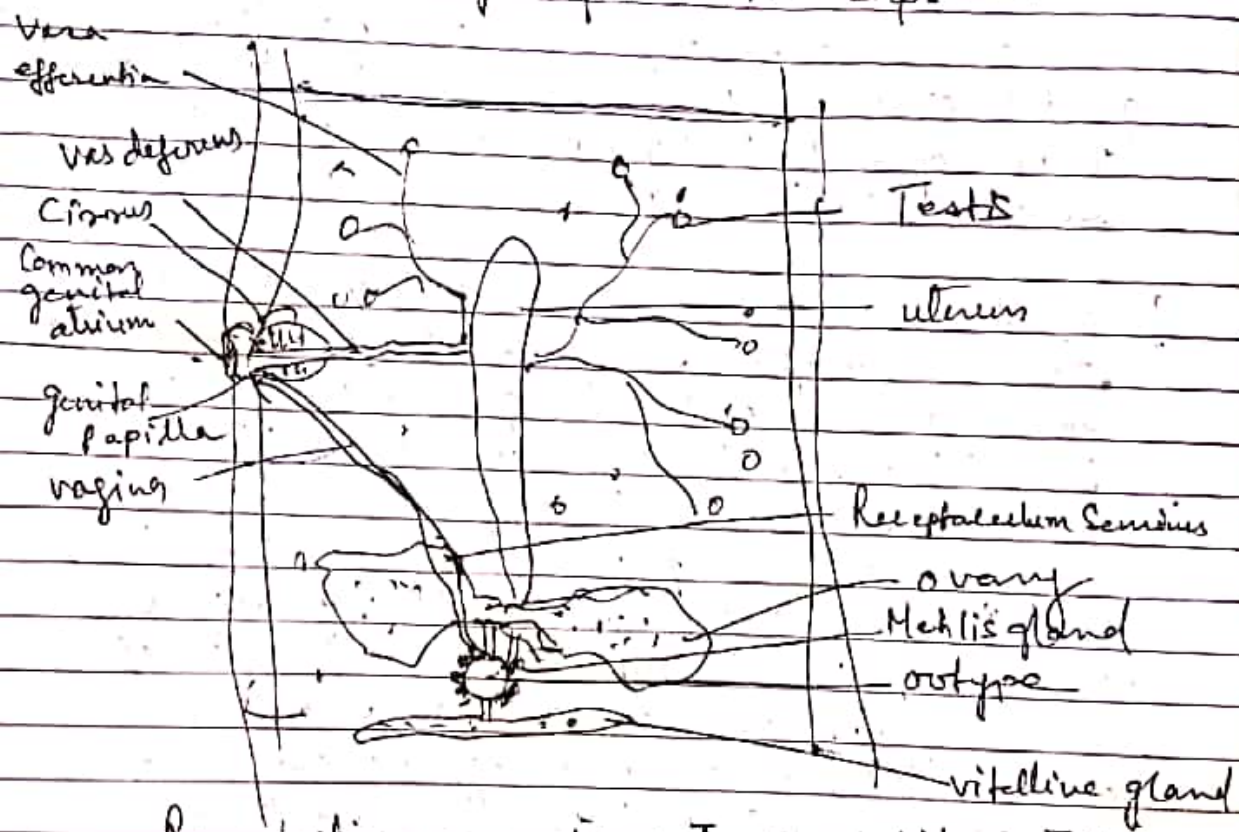 Vasa
efferentia
Vas deferens
Cirrus
Common
genital
atrium
genital
Papilla
vagina
Testis
uterus
Receptaculum Seminis
ovary
Mehlis gland
ootype
vitelline gland